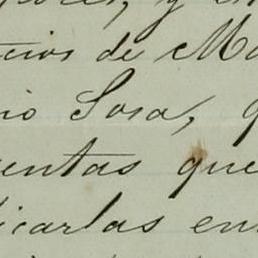 cios de Ma
io Sosa, q
entas que
icarlas en